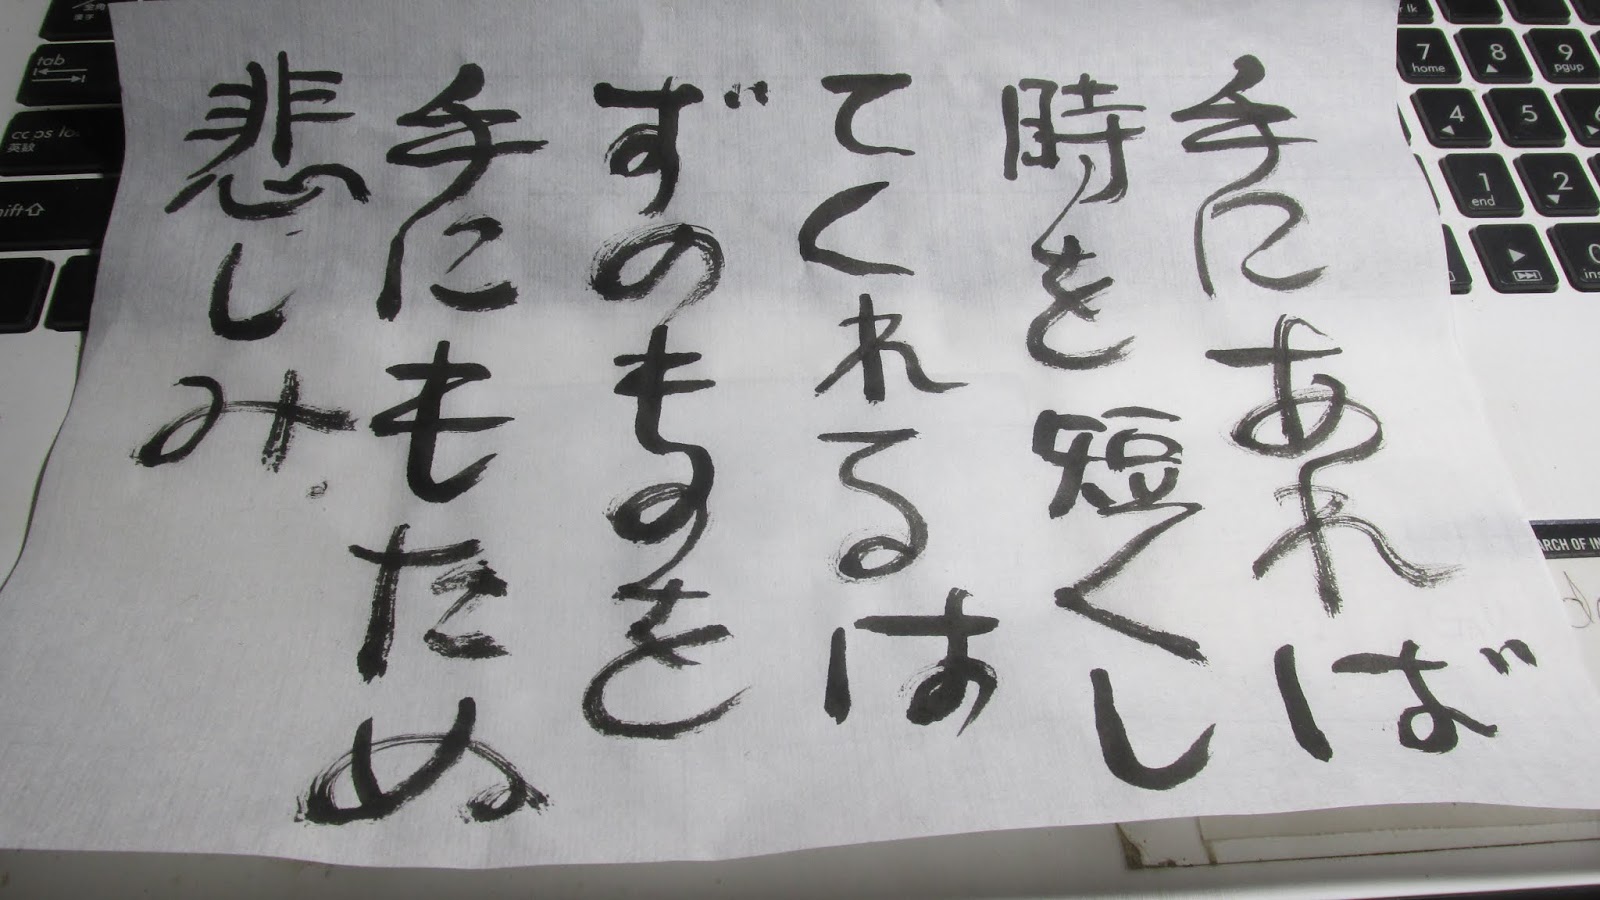 手にあれば
時を短くし
てくれるは
ずのものを
手にもたぬ
悲しみ
tab
caps lo
英数
shift
漢字
7
home
8
9
pgup
4
5
6
1
end
2
0
ins
ARCH OF IN